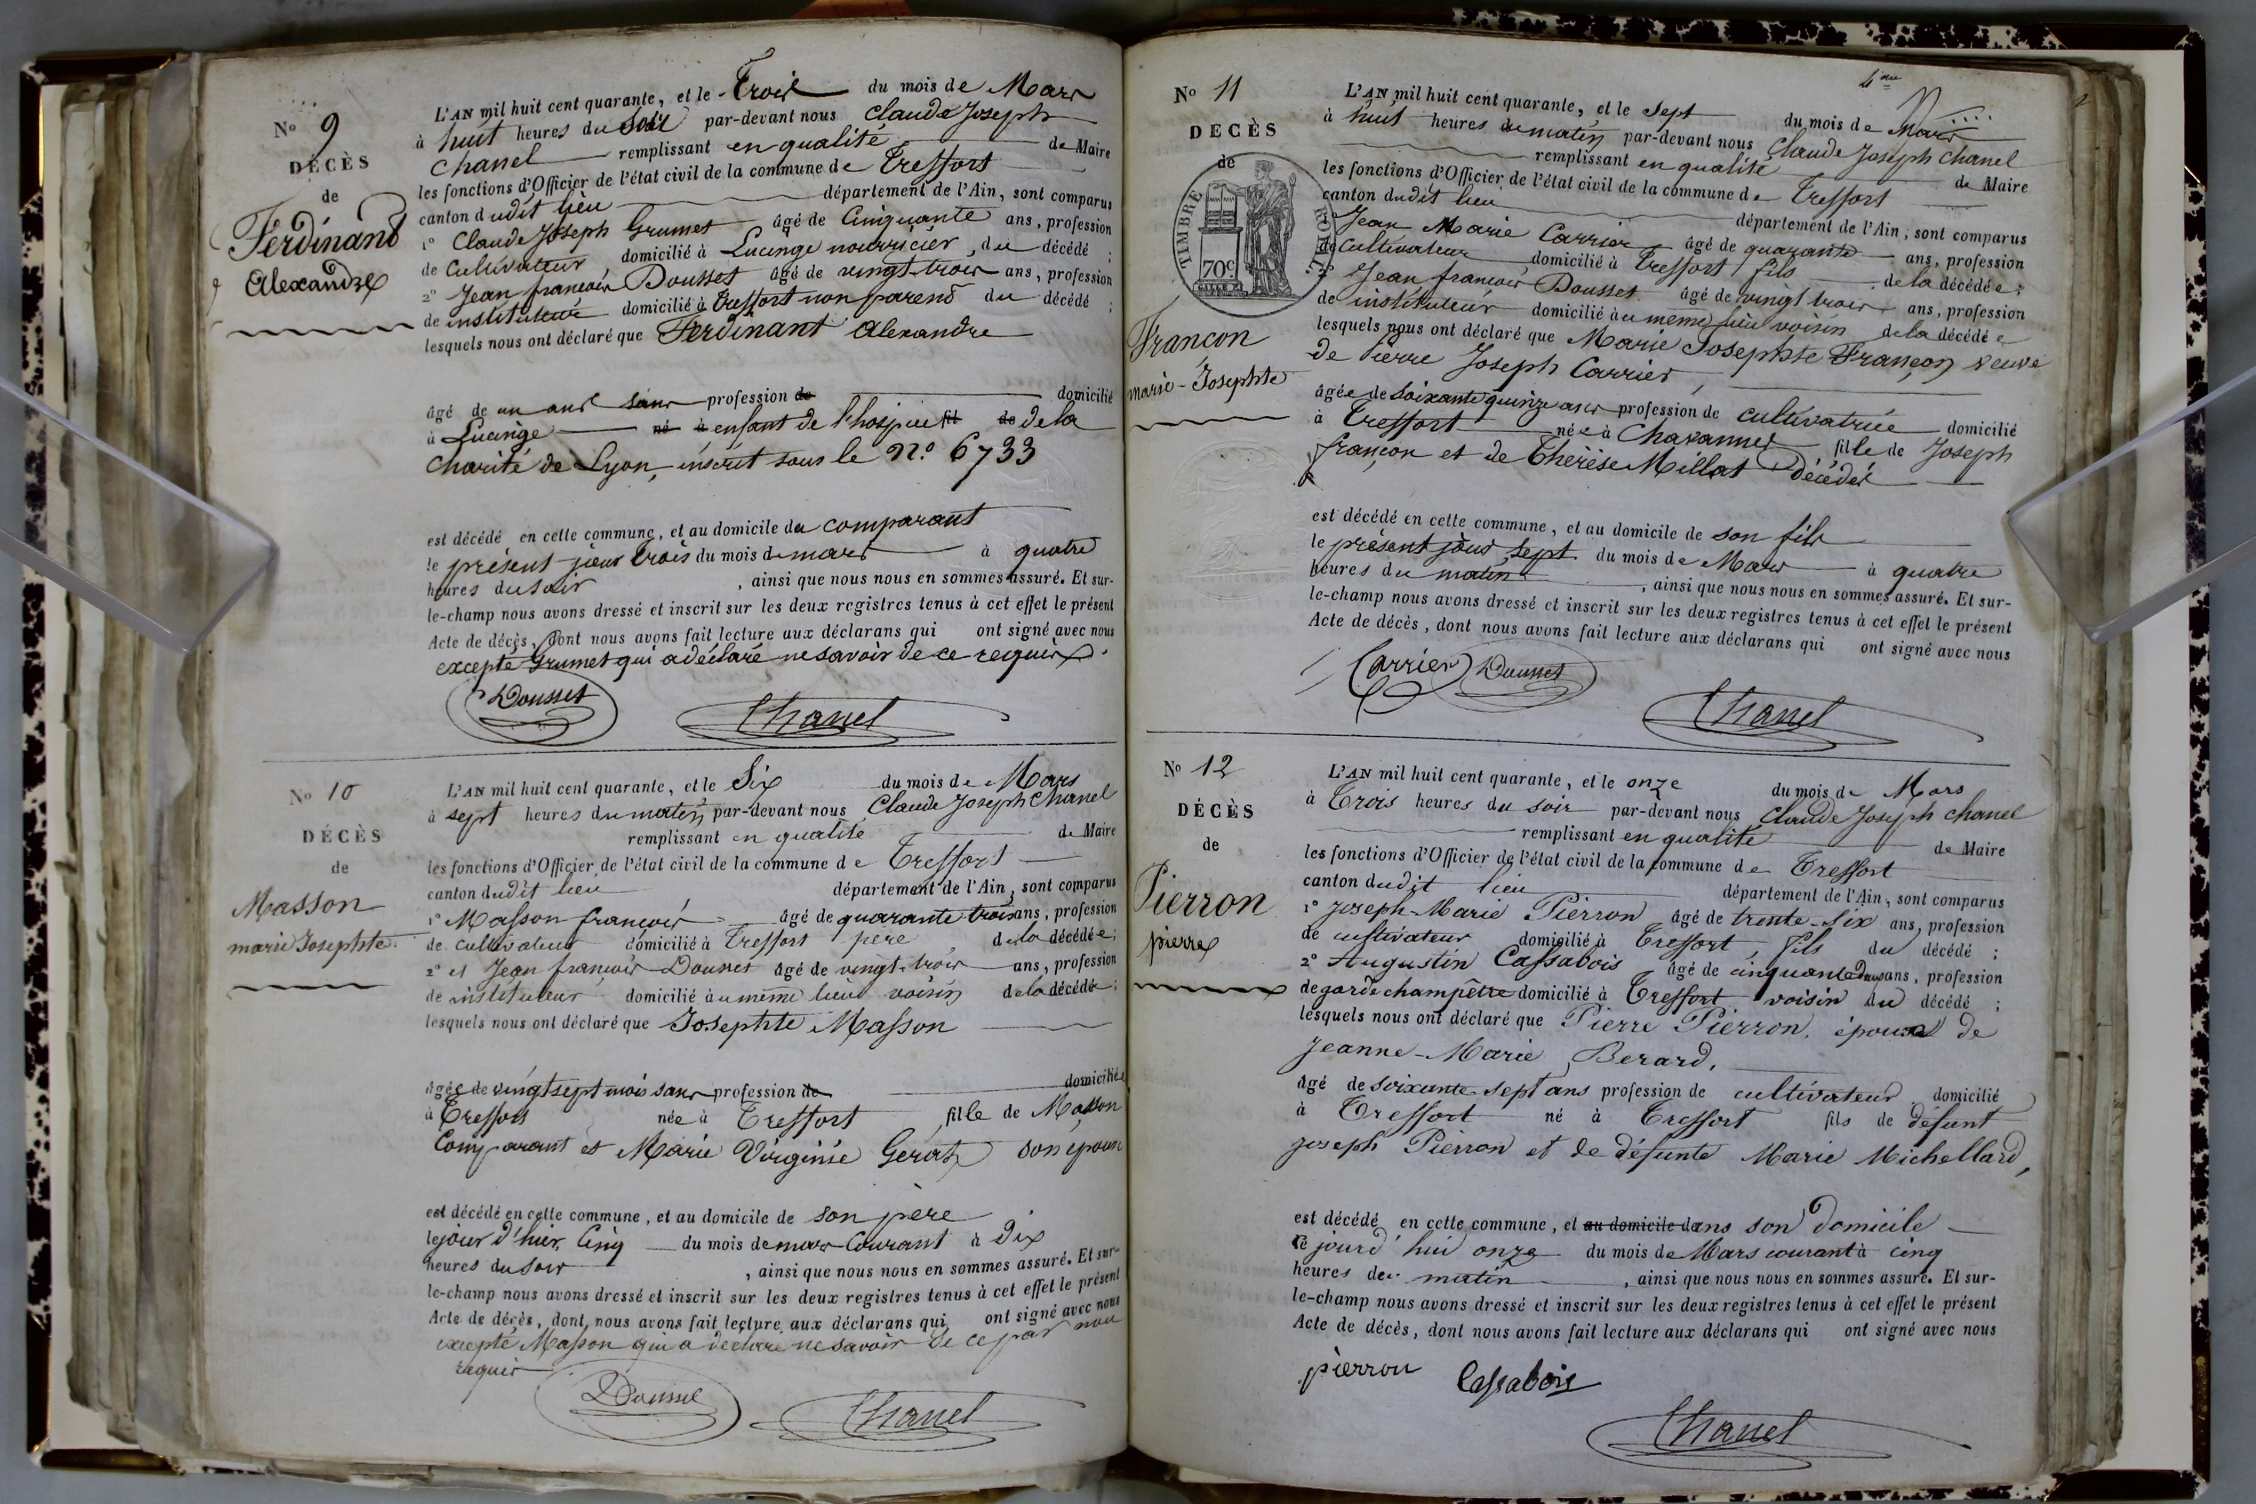 N.o 9
DÉCÈS
de
Ferdinand
Alexandre
L'AN mil huit cent quarante, et le Trois du mois de Mars
à huit heures du soir par-devant nous Claude Joseph
Chanel remplissant en qualité de Maire
les fonctions d'Officier de l'état civil de la commune de Treffort
canton dudit lieu département de l'Ain, sont comparus
1.o Claude Joseph Grumet âgé de Cinquante ans, profession
de Cultivateur domicilié à Lucinge nourricier du décédé ;
2.o Jean françois Dousset âgé de vingt-trois ans, profession
de instituteur domicilié à Treffort non parend du décédé ;
lesquels nous ont déclaré que Ferdinant Alexandre
âgé de un ans sans profession de domicilié
à Lucinge né à enfant de l'hospice fil de de la
Charité de Lyon, inscrit sous le N.o 6733
est décédé en cette commune, et au domicile du comparant
le présent jour trois du mois de mars à quatre
heures du soir , ainsi que nous nous en sommes assuré. Et sur-
le-champ nous avons dressé et inscrit sur les deux registres tenus à cet effet le présent
Acte de décès, dont nous avons fait lecture aux déclarans qui ont signé avec nous
excepté Grumet qui a déclaré ne savoir de ce requis.
Dousset
Chanel
N.o 10
DÉCÈS
de
Masson
marie Josephte
L'AN mil huit cent quarante, et le Six du mois de Mars
à sept heures du matin par-devant nous Claude Joseph Chanel
remplissant en qualité de Maire
les fonctions d'Officier de l'état civil de la commune de Treffort
canton dudit lieu département de l'Ain, sont comparus
1.o Masson françois âgé de quarante trois ans, profession
de cultivateur domicilié à Treffort père de la décédée ;
2.o et Jean françois Dousset âgé de vingt-trois ans, profession
de instituteur domicilié au même lieu voisin de la décédée ;
lesquels nous ont déclaré que Josephte Masson
âgée de vingt sept mois sans profession de domiciliée
à Treffort née à Treffort fille de Masson
Comparant et Marie Virginie son épouse
est décédé en cette commune, et au domicile de son père
le jour d'hier Cinq du mois de mars Courant à Dix
heures du soir , ainsi que nous nous en sommes assuré. Et sur-
le-champ nous avons dressé et inscrit sur les deux registres tenus à cet effet le présent
Acte de décès, dont nous avons fait lecture aux déclarans qui ont signé avec nous
excepté Masson qui a déclaré ne savoir de ce par nous
requis
Dousset
Chanel
N.o 11
DÉCÈS
de
TIMBRE ROYAL
70c
Françon
marie-Josephte
L'AN mil huit cent quarante, et le Sept du mois de Mars
à huit heures du matin par-devant nous Claude Joseph Chanel
remplissant en qualité de Maire
les fonctions d'Officier de l'état civil de la commune de Treffort
canton dudit lieu département de l'Ain, sont comparus
Jean Marie Carrier âgé de quarante ans, profession
de Cultivateur domicilié à Treffort fils de la décédée ;
2.o Jean françois Dousset âgé de vingt trois ans, profession
de instituteur domicilié au même lieu voisin de la décédée
lesquels nous ont déclaré que Marie Josephte Françon veuve
de Pierre Joseph Carrier,
âgée de soixante quinze ans profession de cultivatrice domicilié
à Treffort née à Chavannes fille de Joseph
françon et de Thérèse Millat décédés
est décédé en cette commune, et au domicile de son fils
le présent jour sept du mois de Mars à quatre
heures du matin , ainsi que nous nous en sommes assuré. Et sur-
le-champ nous avons dressé et inscrit sur les deux registres tenus à cet effet le présent
Acte de décès, dont nous avons fait lecture aux déclarans qui ont signé avec nous
Carrier Dousset
Chanel
N.o 12
DÉCÈS
de
Pierron
pierre
L'AN mil huit cent quarante, et le onze du mois de Mars
à Trois heures du soir par-devant nous Claude Joseph Chanel
remplissant en qualité de Maire
les fonctions d'Officier de l'état civil de la commune de Treffort
canton dudit lieu département de l'Ain, sont comparus
1.o Joseph-Marie Pierron âgé de trente-six ans, profession
de cultivateur domicilié à Treffort, fils du décédé ;
2.o Augustin Cassabois âgé de cinquante deux ans, profession
de garde champêtre domicilié à Treffort voisin du décédé ;
lesquels nous ont déclaré que Pierre Pierron, époux de
Jeanne-Marie Berard,
âgé de soixante-sept ans profession de cultivateur domicilié
à Treffort né à Treffort fils de défunt
Joseph Pierron et de défunte Marie Michellard,
est décédé en cette commune, et au domicile dans son domicile
ce jourd'hui onze du mois de Mars courant à cinq
heures du matin , ainsi que nous nous en sommes assuré. Et sur-
le-champ nous avons dressé et inscrit sur les deux registres tenus à cet effet le présent
Acte de décès, dont nous avons fait lecture aux déclarans qui ont signé avec nous
pierron Cassabois
Chanel